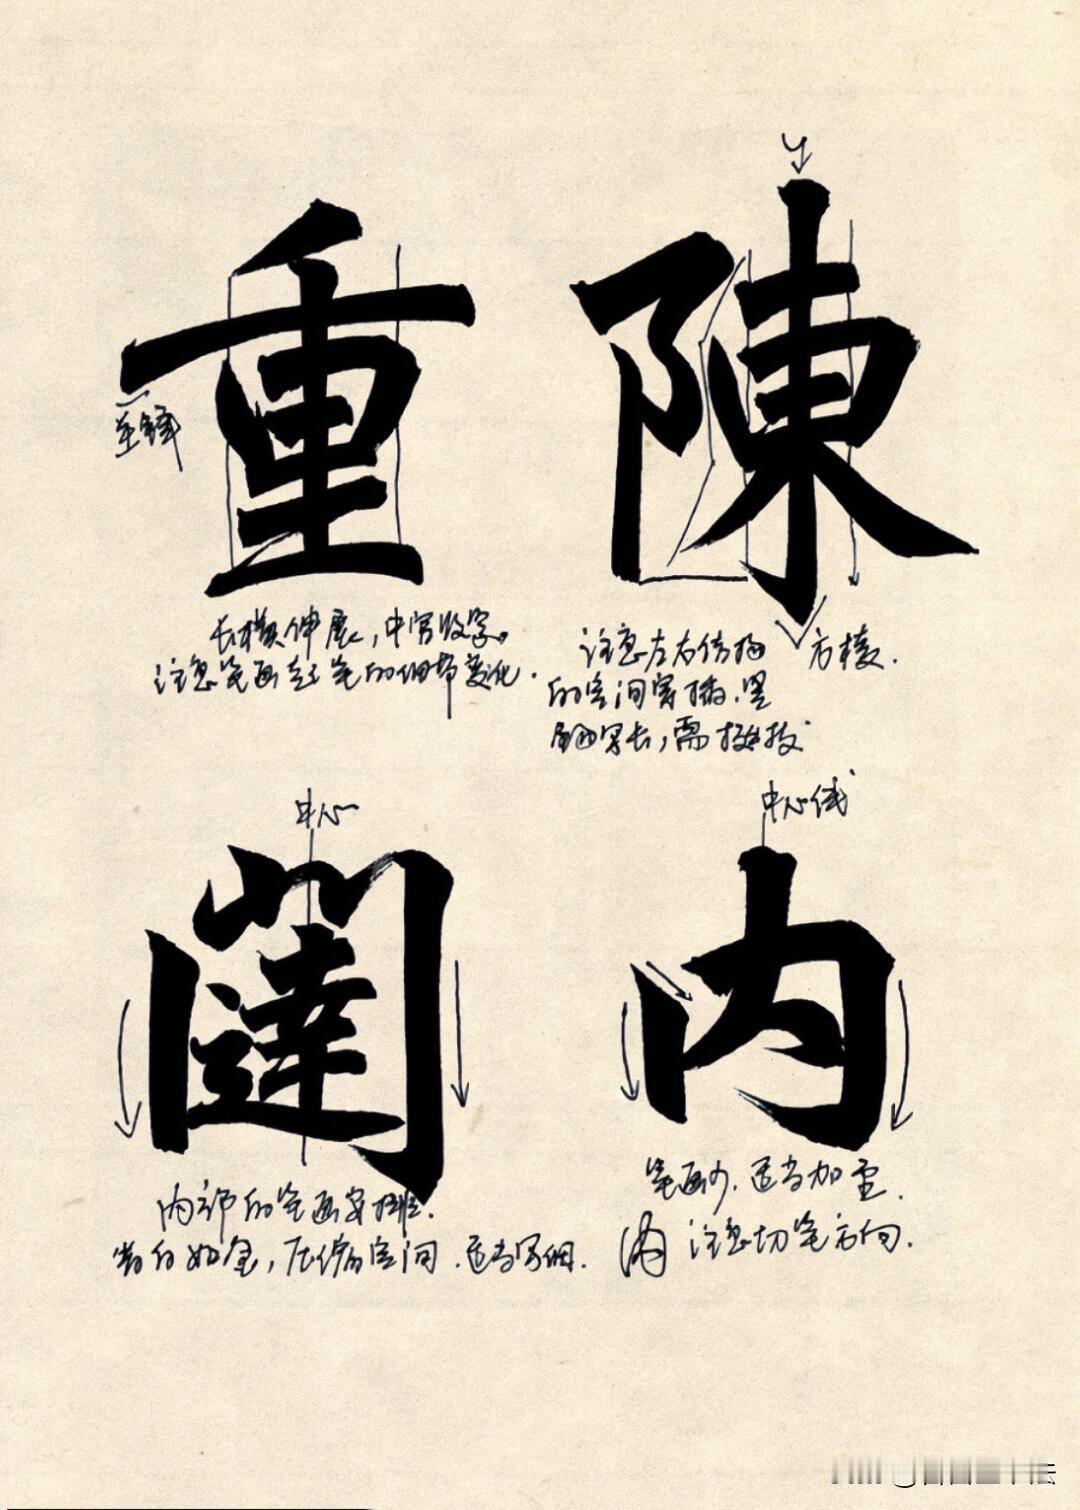 重
陳
露锋
长横伸展，中宫收紧。
注意笔画起笔的细节变化.
注意左右结构
的空间穿插.竖
画写长，需挺拔
方棱.
中心
中心线
闥
内
内部的笔画安排.
惜白如金，压缩空间.适当写细.
笔画少.适当加重.
注意切笔方向.